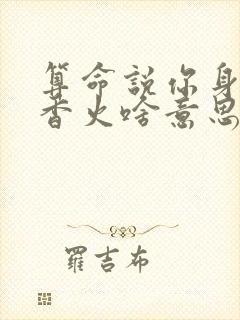 算命説你身
香火啥意思
羅吉布